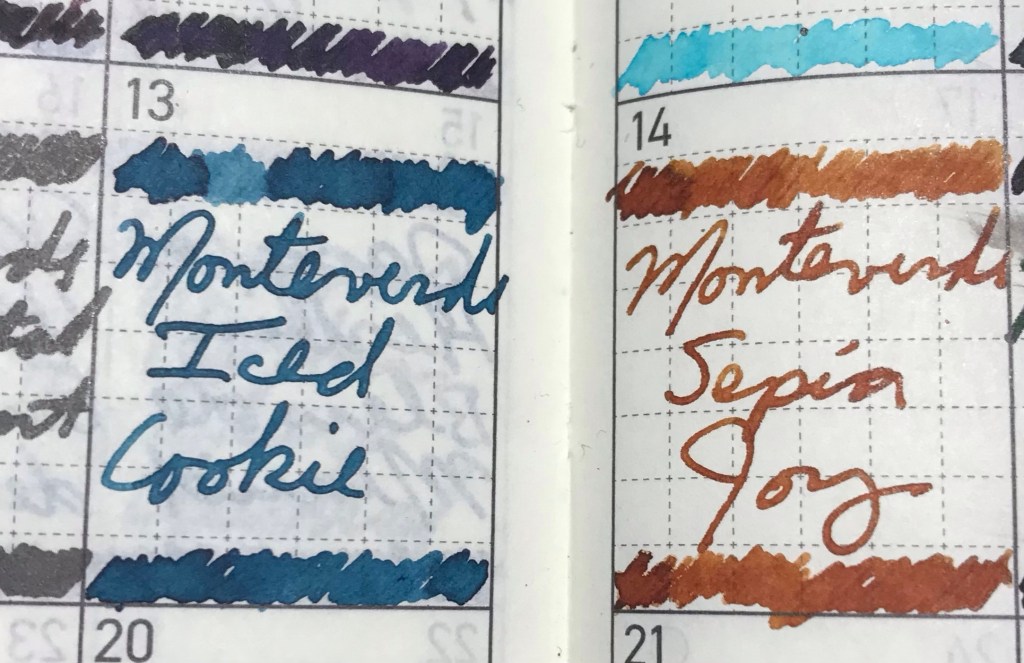 13
Monteverde
Iced
Cookie
20
14
Monteverde
Sepia
Joy
21